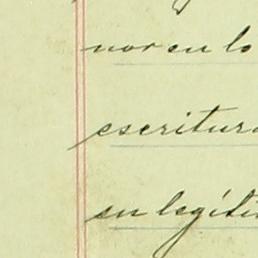 nor en lo
escritura
en legíti